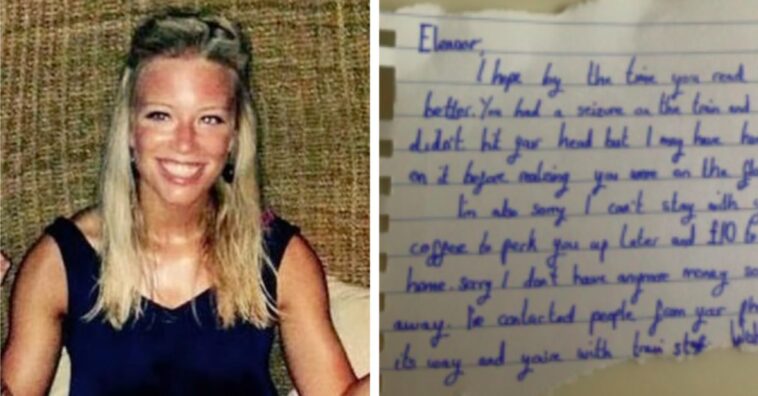 Eleanor,
I hope by the time you read
better. You had a seizure on the train and
didn't hit your head but I may have ha
on it before realising you were on the flo
I'm also sorry I can't stay with
coffee to perk you up later and £10 to
home. Sorry I don't have anymore money so
away. I've contacted people from your ph
its way and you're with train staff.